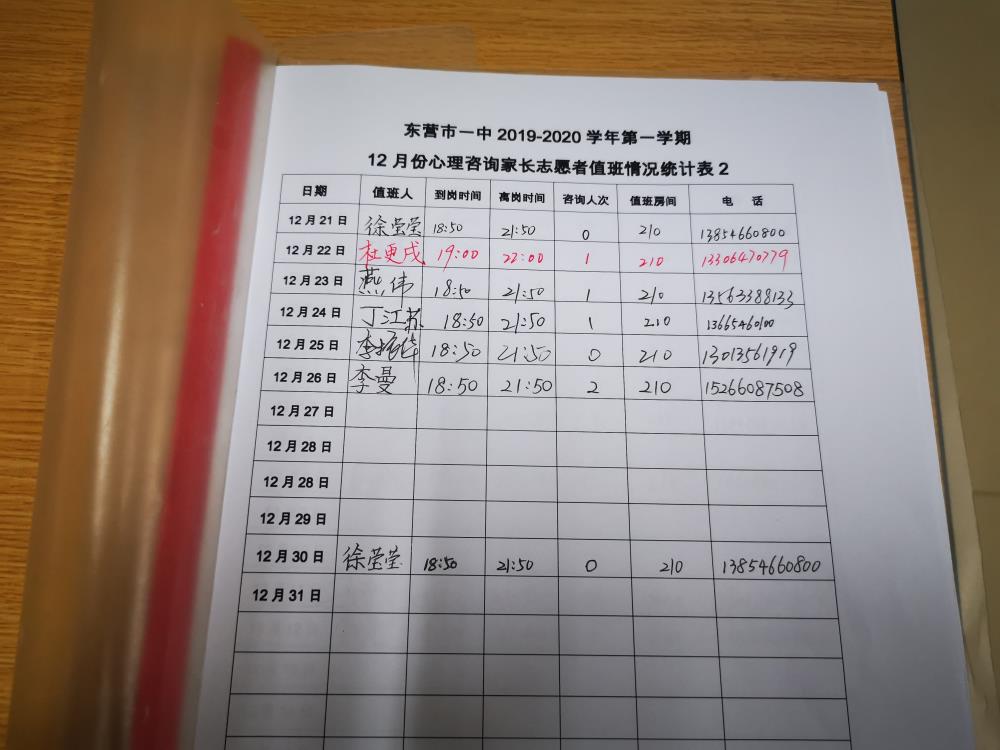 东营市一中 2019-2020 学年第一学期
12 月份心理咨询家长志愿者值班情况统计表 2
日期 值班人 到岗时间 离岗时间 咨询人次 值班房间 电 话
12 月 21 日 徐莹莹 18:50 21:50 0 210 13854660800
12 月 22 日 杜更成 19:00 22:00 1 210 13306470779
12 月 23 日 燕伟 18:50 21:50 1 210 13563388133
12 月 24 日 丁江苏 18:50 21:50 1 210 13665460100
12 月 25 日 李振华 18:50 21:50 0 210 13013561919
12 月 26 日 李曼 18:50 21:50 2 210 15266087508
12 月 27 日
12 月 28 日
12 月 28 日
12 月 29 日
12 月 30 日 徐莹莹 18:50 21:50 0 210 13854660800
12 月 31 日